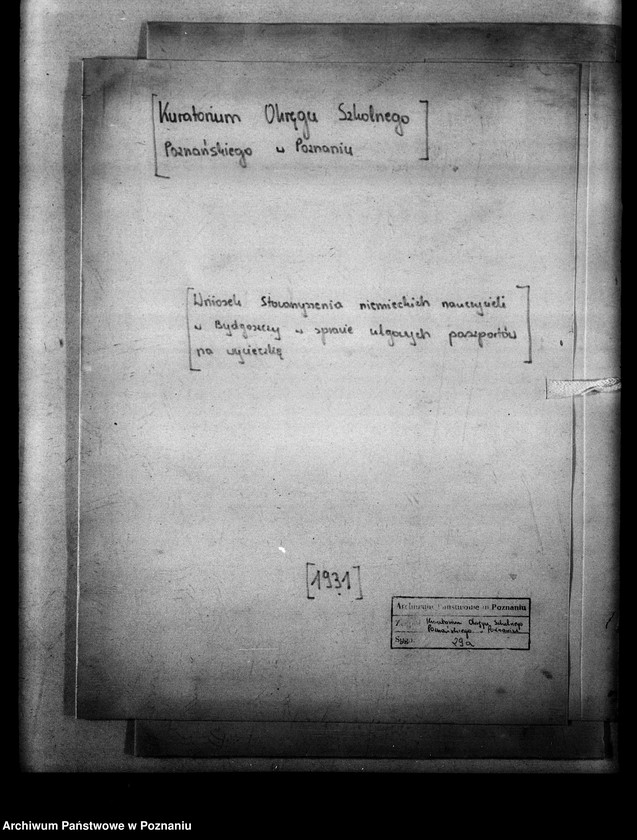 [Kuratorium Okręgu Szkolnego
Poznańskiego w Poznaniu]
[Wniosek Stowarzyszenia niemieckich nauczycieli
w Bydgoszczy w sprawie ulgowych paszportów
na wycieczkę]
[1931]
Archiwum Państwowe w Poznaniu
Kuratorium Okręgu Szkolnego
Poznańskiego w Poznaniu
29a
Archiwum Państwowe w Poznaniu